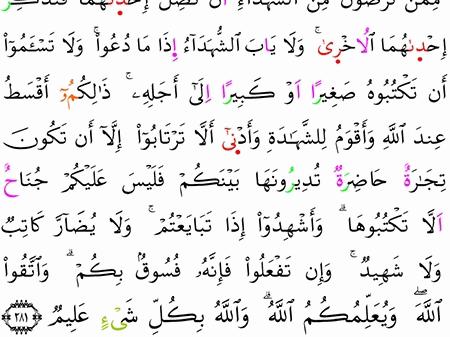 مِمَّن تَرۡضَوۡنَ مِنَ ٱلشُّهَدَآءِ ان تَضِلَّ إِحۡدٜىٰهُمَا فَتُذَكِّرَ
إِحۡدٜىٰهُمَا اَ۬لُاخۡر۪يٰۖ وَلَا يَابَ اَ۬لشُّهَدَآءُ اِ۪ذَا مَا دُعُواْۖ وَلَا تَسۡـَٔمُوٓاْ
أَن تَكۡتُبُوهُ صَغِيرًا اَوۡ كَبِيرًا اِلَىٰٓ أَجَلِهِۦۖ ذَٰلِكُمُۥٓ أَقۡسَطُ
عِندَ اَ۬للَّهِ وَأَقۡوَمُ لِلشَّهَٰدَةِ وَأَدۡنٜىٰٓ أَلَّا تَرۡتَابُوٓاْ إِلَّآ أَن تَكُونَ
تِجَٰرَةٌ حَاضِرَةٌ تُدِيرُونَهَا بَيۡنَكُمۡ فَلَيۡسَ عَلَيۡكُمۡ جُنَاحٌ
اَلَّا تَكۡتُبُوهَاۗ وَأَشۡهِدُوٓاْ إِذَا تَبَايَعۡتُمۡۖ وَلَا يُضَآرَّ كَاتِبٌ
وَلَا شَهِيدٌۖ وَإِن تَفۡعَلُواْ فَإِنَّهُۥ فُسُوقُۢ بِكُمۡۗ وَٱتَّقُواْ
اُ۬للَّهَۖ وَيُعَلِّمُكُمُ اُ۬للَّهُۗ وَٱللَّهُ بِكُلِّ شَيۡءٍ عَلِيمٌ ٢٨١